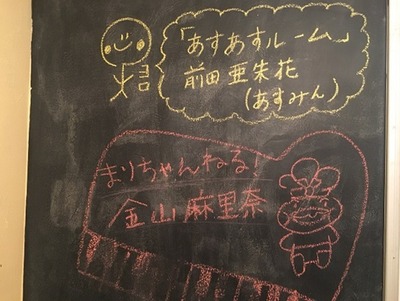 「あすあすルーム」
前田亜朱花
(あすみん)
まりちゃんねる!
金山麻里奈